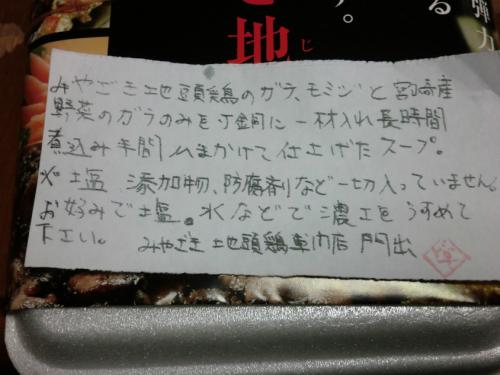 弾力
る
す。
き地
じ
みやざき地頭鶏のガラ、モミジと宮崎産
野菜のガラのみを寸胴に一杯入れ長時間
煮込み手間ひまかけて仕上げたスープ。
※塩 添加物、防腐剤など一切入っていません。
お好みで塩。水などで濃さをうすめて
下さい。 みやざき地頭鶏専門店 門出